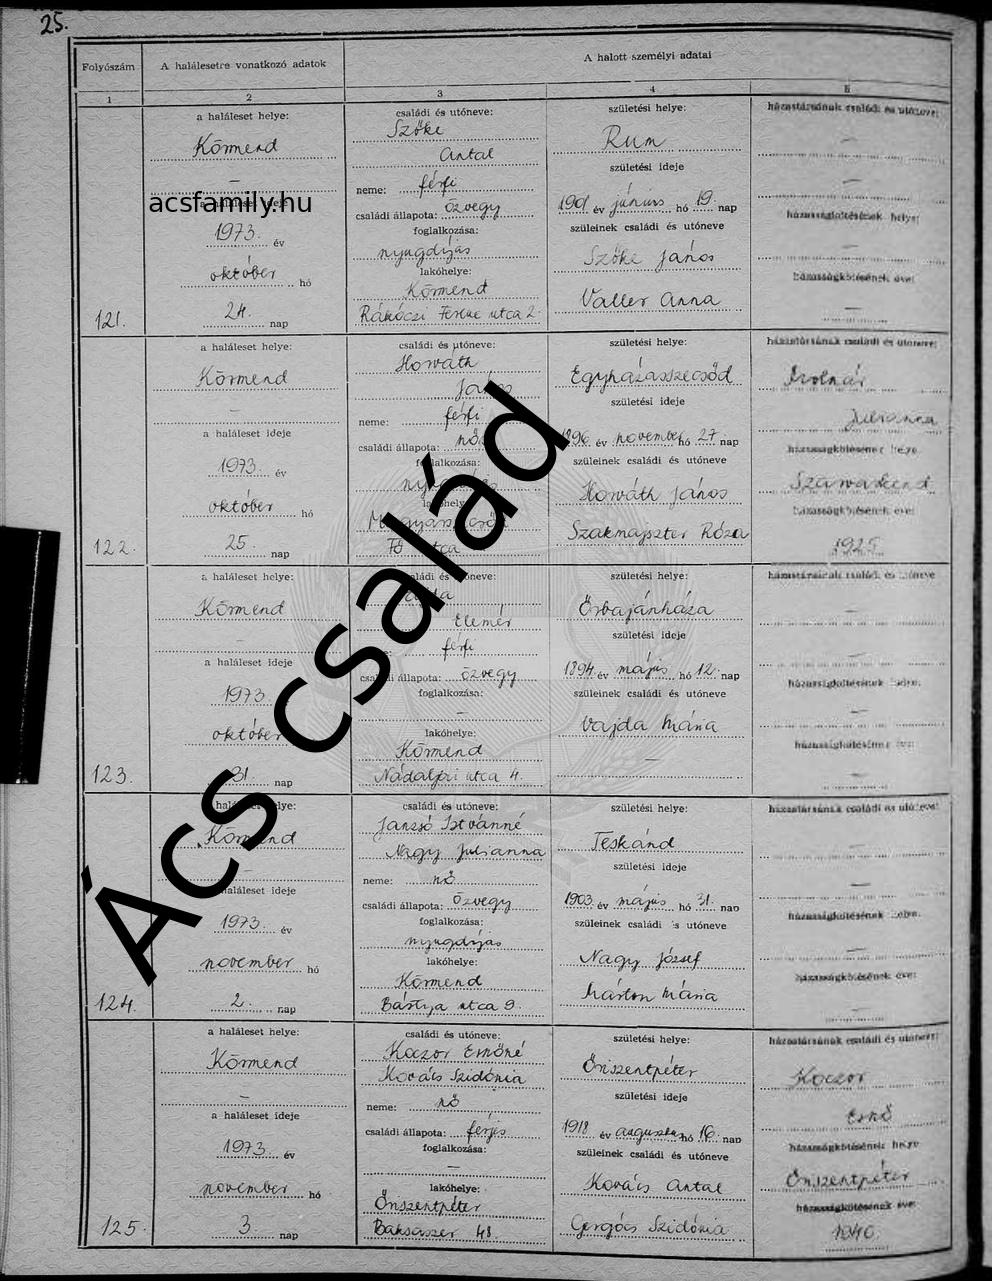 25.
Folyószám
A halálesetre vonatkozó adatok
A halott személyi adatai
1
2
3
4
5
a haláleset helye:
Körmend
—
a haláleset ideje
1973. év
október hó
24. nap
121.
családi és utóneve:
Szőke
Antal
neme: férfi
családi állapota: özvegy
foglalkozása:
nyugdíjas
lakóhelye:
Körmend
Rákóczi Ferenc utca 2.
születési helye:
Rum
születési ideje
1901 év június hó 19. nap
szüleinek családi és utóneve
Szőke János
Valler Anna
házastársának családi és utóneve:
—
—
házasságkötésének helye:
—
házasságkötésének éve:
—
a haláleset helye:
Körmend
—
a haláleset ideje
1973. év
október hó
25. nap
122.
családi és utóneve:
Horváth
János
neme: férfi
családi állapota: nős
foglalkozása:
lakóhelye:
utca
születési helye:
Egyházasszecsőd
születési ideje
1896 év november hó 27. nap
szüleinek családi és utóneve
Horváth János
Szakmajszter Róza
házastársának családi és utóneve:
Julianna
házasságkötésének helye
házasságkötésének éve:
a haláleset helye:
Körmend
—
a haláleset ideje
1973
október
31. nap
123.
családi és utóneve:
Elemér
férfi
családi állapota: özvegy
foglalkozása:
—
lakóhelye:
Körmend
utca 4.
születési helye:
Őrbajánháza
születési ideje
1894. év május hó 12. nap
szüleinek családi és utóneve
Vajda Mária
—
házastársának családi és utóneve
—
—
házasságkötésének helye:
—
házasságkötésének éve:
—
a haláleset helye:
Körmend
—
a haláleset ideje
1973. év
november hó
2. nap
124.
családi és utóneve:
Janzsó Istvánné
Nagy Julianna
neme: nő
családi állapota: özvegy
foglalkozása:
nyugdíjas
lakóhelye:
Körmend
Bástya utca 9.
születési helye:
Teskánd
születési ideje
1903. év május hó 31. nap
szüleinek családi és utóneve
Nagy József
Márton Mária
házastársának családi és utóneve:
—
—
házasságkötésének helye:
—
házasságkötésének éve:
—
a haláleset helye:
Körmend
—
a haláleset ideje
1973. év
november hó
3. nap
125.
családi és utóneve:
Koczor Ernőné
Kovács Szidónia
neme: nő
családi állapota: férjes
foglalkozása:
—
lakóhelye:
Őriszentpéter
Baksaszer 48.
születési helye:
Őriszentpéter
születési ideje
1918 év augusztus hó 16. nap
szüleinek családi és utóneve
Kovács Antal
Gergács Szidónia
házastársának családi és utóneve:
Koczor
Ernő
házasságkötésének helye
Őriszentpéter
házasságkötésének éve:
1940.
acsfamily.hu
Ács család